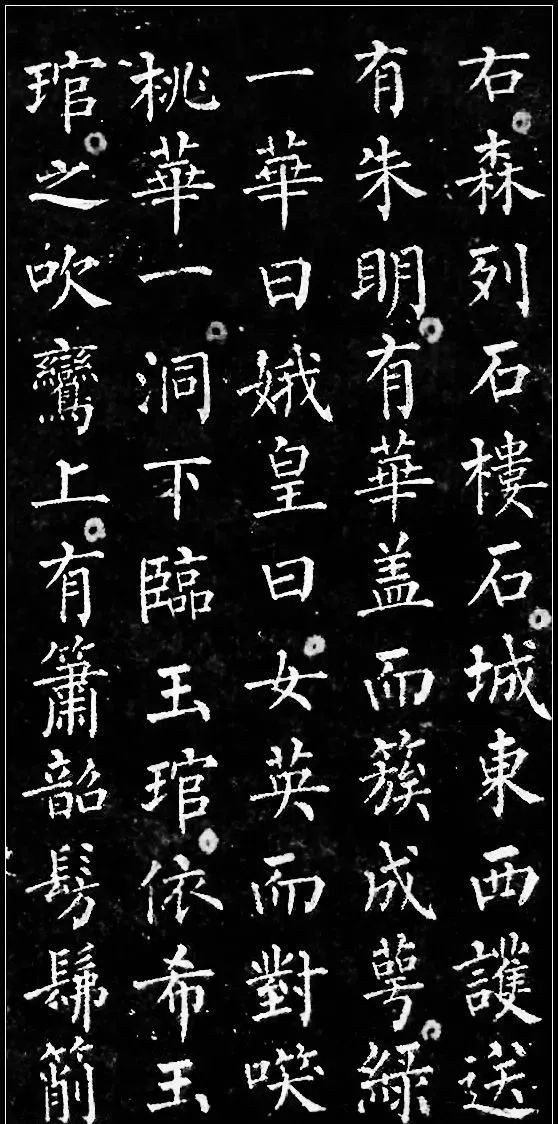 右森列石樓石城東西護送
有朱明有華盖而簇成萼緑
一華曰娥皇曰女英而對㗛
桃華一洞下臨玉琯依希玉
琯之吹鸞上有簫韶髣髴簫